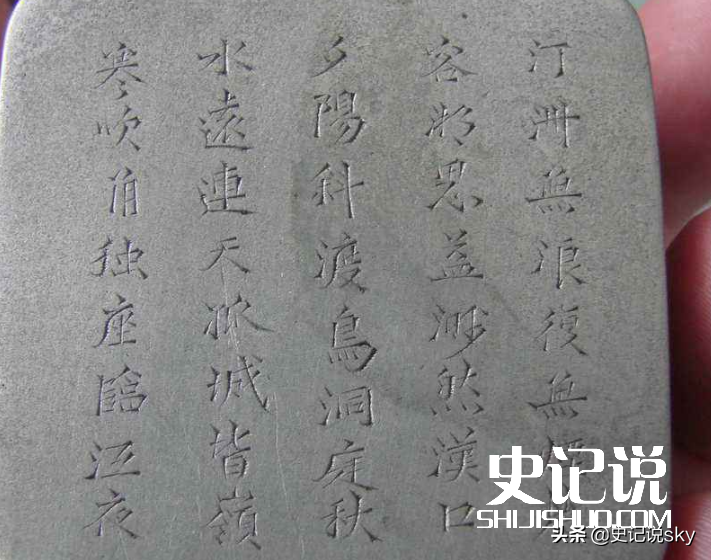 汀洲無浪復無煙
客相思益渺然漢口
夕陽斜渡鳥洞庭秋
水遠連天孤城皆嶺
寒吹角独座臨江夜
史记说
SHIJISHUO.COM
头条 @史记说sky